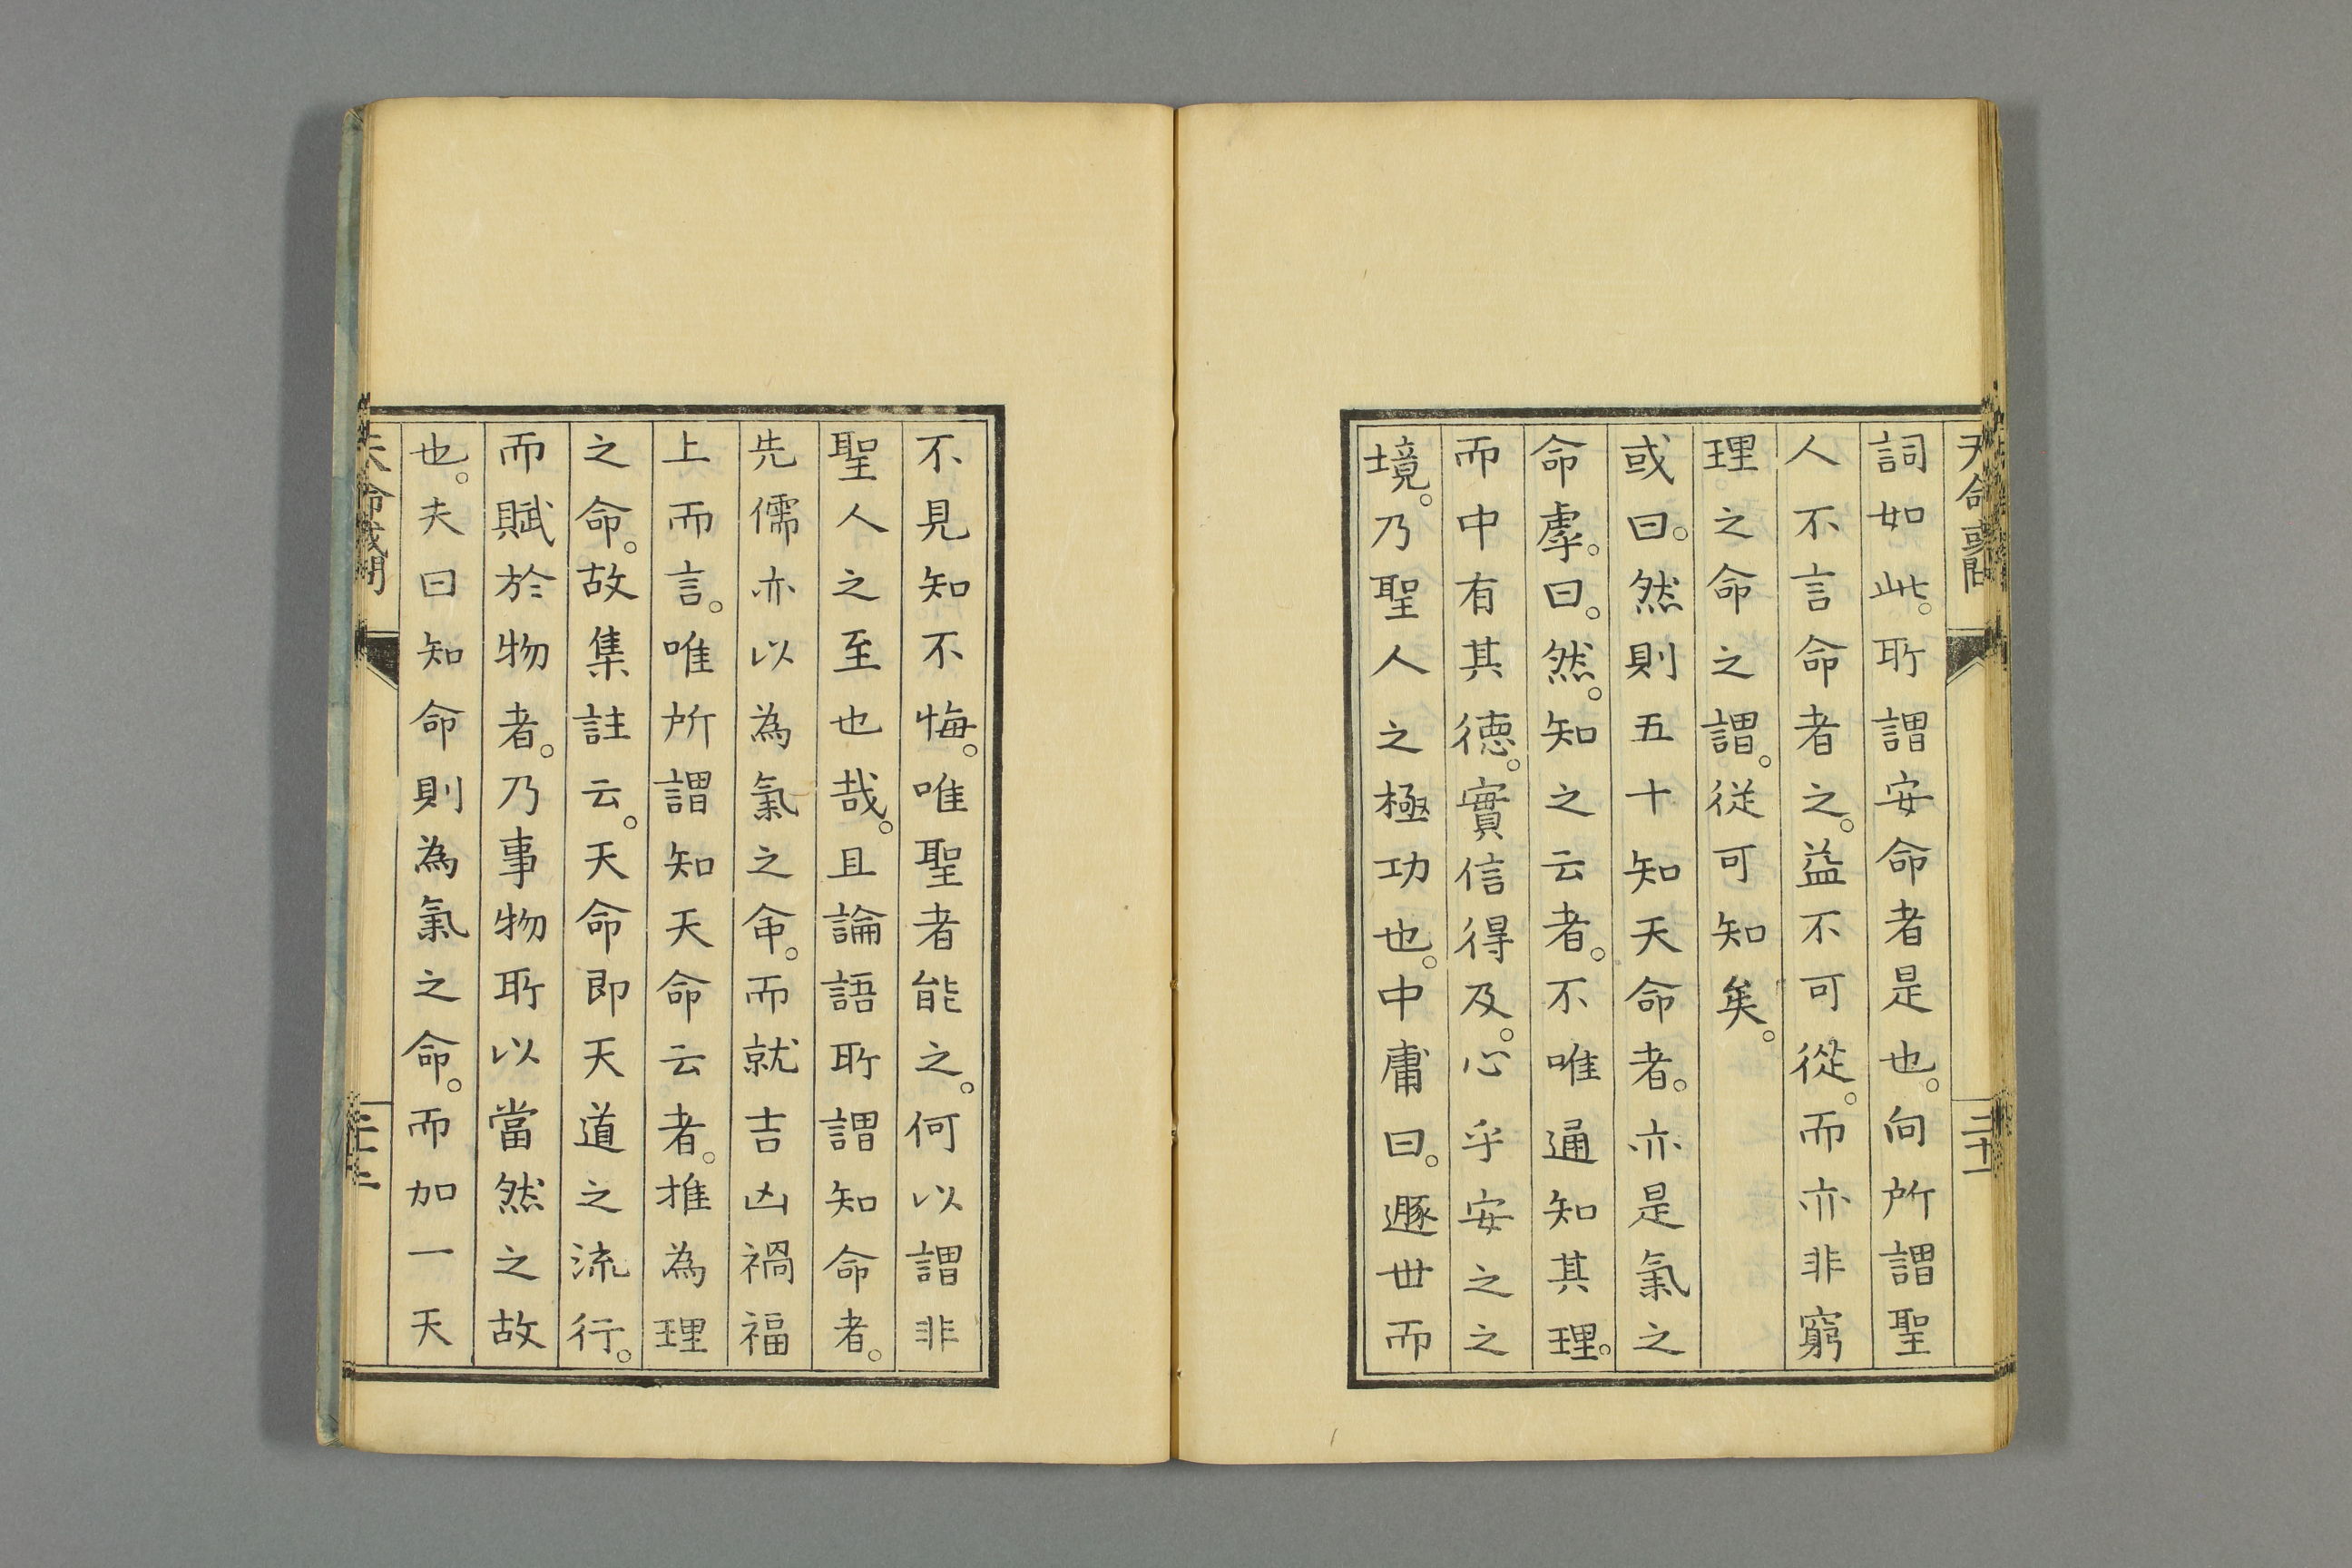 天命或問
三十一
詞如此。所謂安命者是也。向所謂聖
人不言命者之。益不可從。而亦非窮
理之命之謂。從可知矣。
或曰。然則五十知天命者。亦是氣之
命虖。曰。然。知之云者。不唯通知其理。
而中有其德。實信得及。心乎安之之
境。乃聖人之極功也。中庸曰。遯世而
不見知不悔。唯聖者能之。何以謂非
聖人之至也哉。且論語所謂知命者。
先儒亦以為氣之命。而就吉凶禍福
上而言。唯所謂知天命云者。推為理
之命。故集註云。天命即天道之流行。
而賦於物者。乃事物所以當然之故
也。夫曰知命則為氣之命。而加一天
天命或問